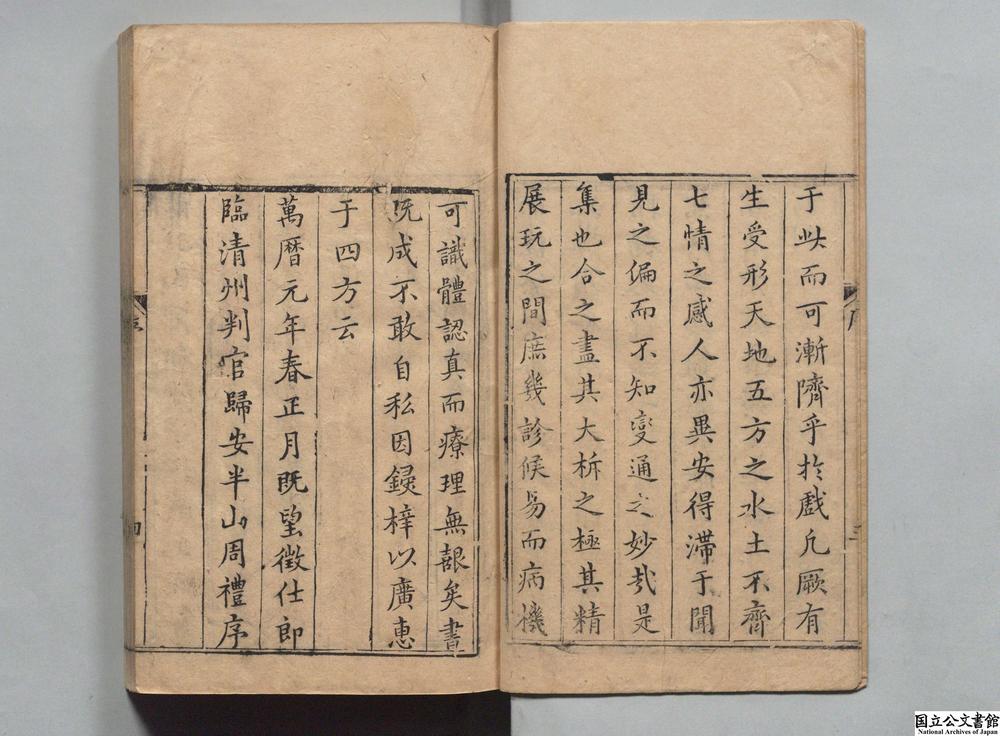 于此而可漸隮乎於戲凢厥有
生受形天地五方之水土不齊
七情之感人亦異安得滯于聞
見之偏而不知變通之妙㢤是
集也合之盡其大析之極其精
展玩之間庶幾診候昜而病機
可識體認真而療理無艱矣書
既成不敢自私因鋟梓以廣惠
于四方云
萬曆元年春正月既望徵仕郎
臨清州判官歸安半山周禮序
国立公文書館
National Archives of Japan